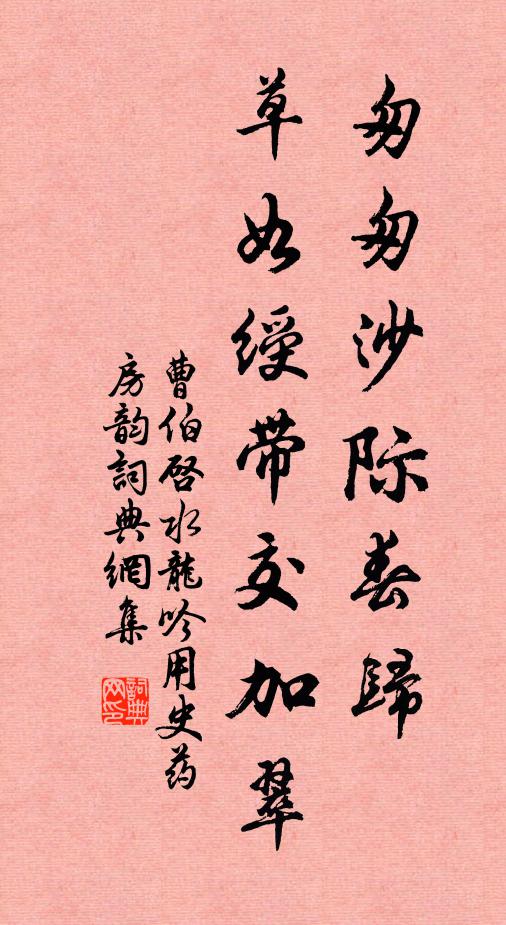 匆匆沙际春歸
草如綬带交加翠
曹伯启水龍吟用史药
房韵詞典網集
詞典
网印